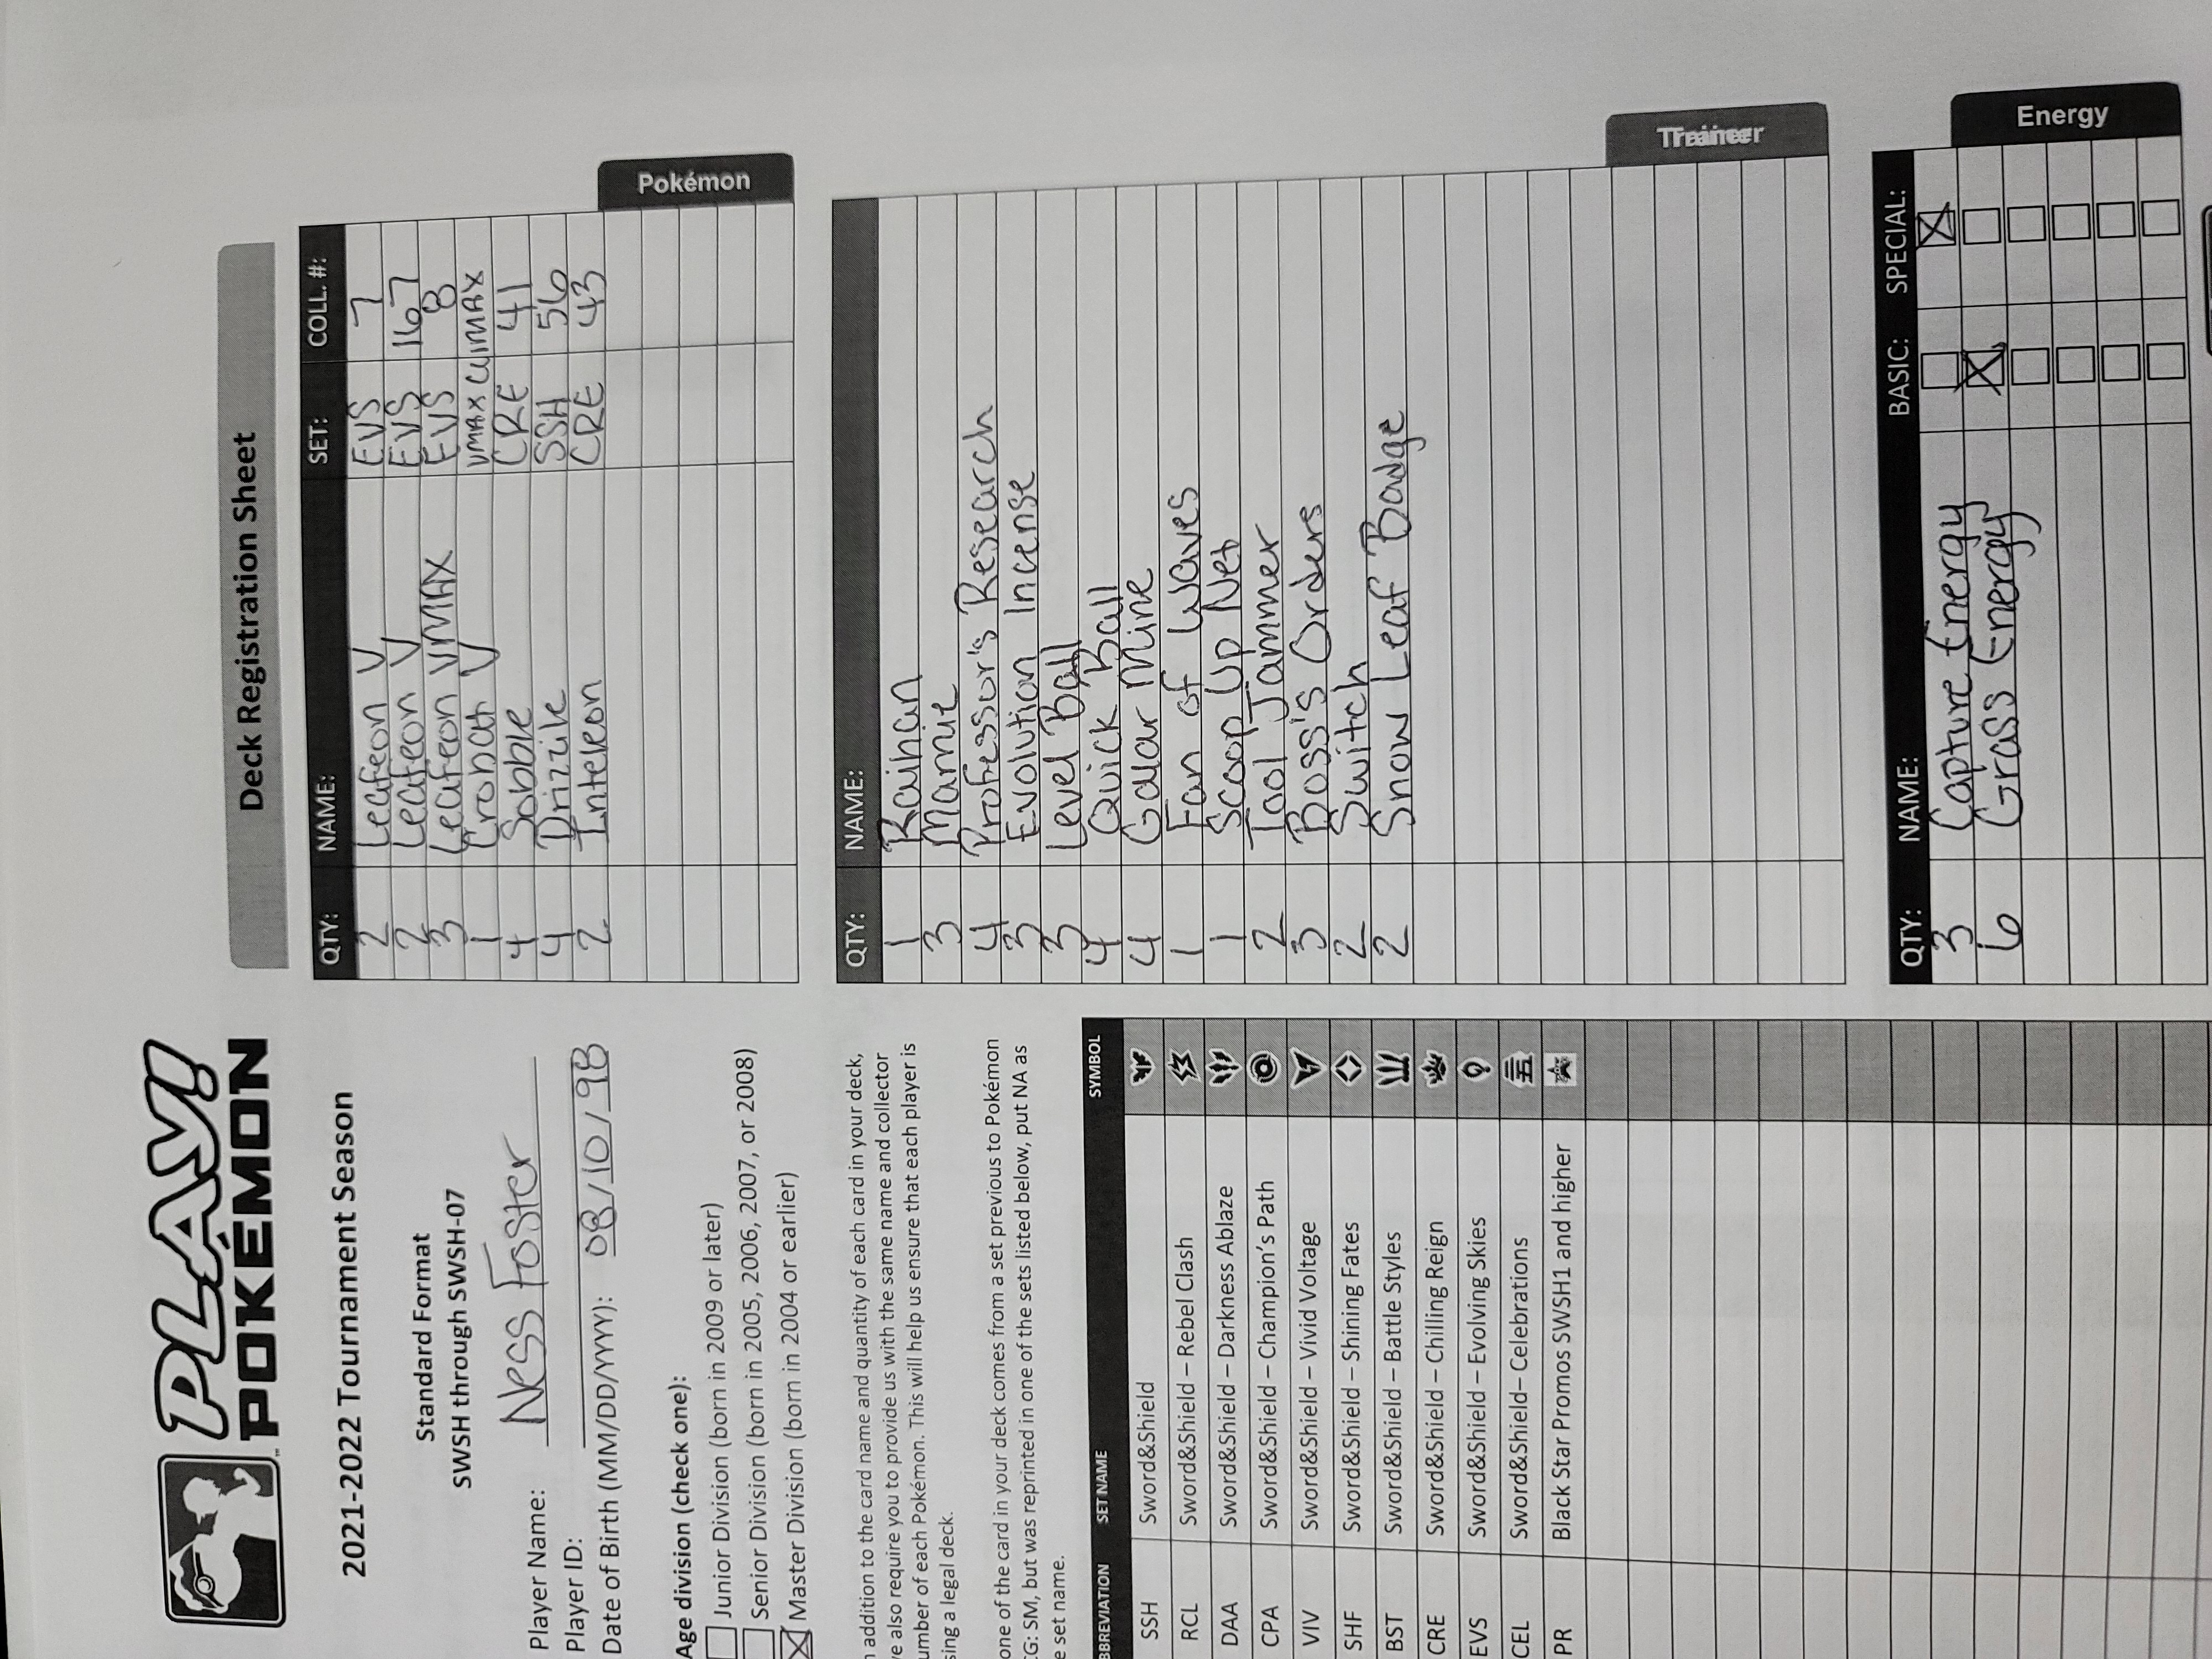 PLAY!
POKÉMON
2021-2022 Tournament Season
Standard Format
SWSH through SWSH-07
Player Name: Ness Foster
Player ID:
Date of Birth (MM/DD/YYYY): 08/10/98
Age division (check one):
Junior Division (born in 2009 or later)
Senior Division (born in 2005, 2006, 2007, or 2008)
Master Division (born in 2004 or earlier)
addition to the card name and quantity of each card in your deck,
also require you to provide us with the same name and collector
of each Pokémon. This will help us ensure that each player is
a legal deck.
one of the card in your deck comes from a set previous to Pokémon
SM, but was reprinted in one of the sets listed below, put NA as
set name.
SET NAME SYMBOL
SSH Sword&Shield
RCL Sword&Shield – Rebel Clash
DAA Sword&Shield – Darkness Ablaze
CPA Sword&Shield – Champion's Path
VIV Sword&Shield – Vivid Voltage
SHF Sword&Shield – Shining Fates
BST Sword&Shield – Battle Styles
CRE Sword&Shield – Chilling Reign
EVS Sword&Shield – Evolving Skies
CEL Sword&Shield– Celebrations
PR Black Star Promos SWSH1 and higher
Deck Registration Sheet
QTY: NAME: SET: COLL. #:
2 Leafeon V EVS 7
2 Leafeon V EVS 167
3 Leafeon VMAX EVS 8
1 Crobat V VMAX CLIMAX
4 Sobble CRE 41
4 Drizzile SSH 56
2 Inteleon CRE 43
Pokémon
QTY: NAME:
1 Raihan
3 Marnie
4 Professor's Research
3 Evolution Incense
3 Level Ball
4 Quick Ball
4 Galar Mine
1 Fan of Waves
1 Scoop Up Net
2 Tool Jammer
3 Boss's Orders
2 Switch
2 Snow Leaf Badge
Trainer
QTY: NAME: BASIC: SPECIAL:
3 Capture Energy
6 Grass Energy
Energy